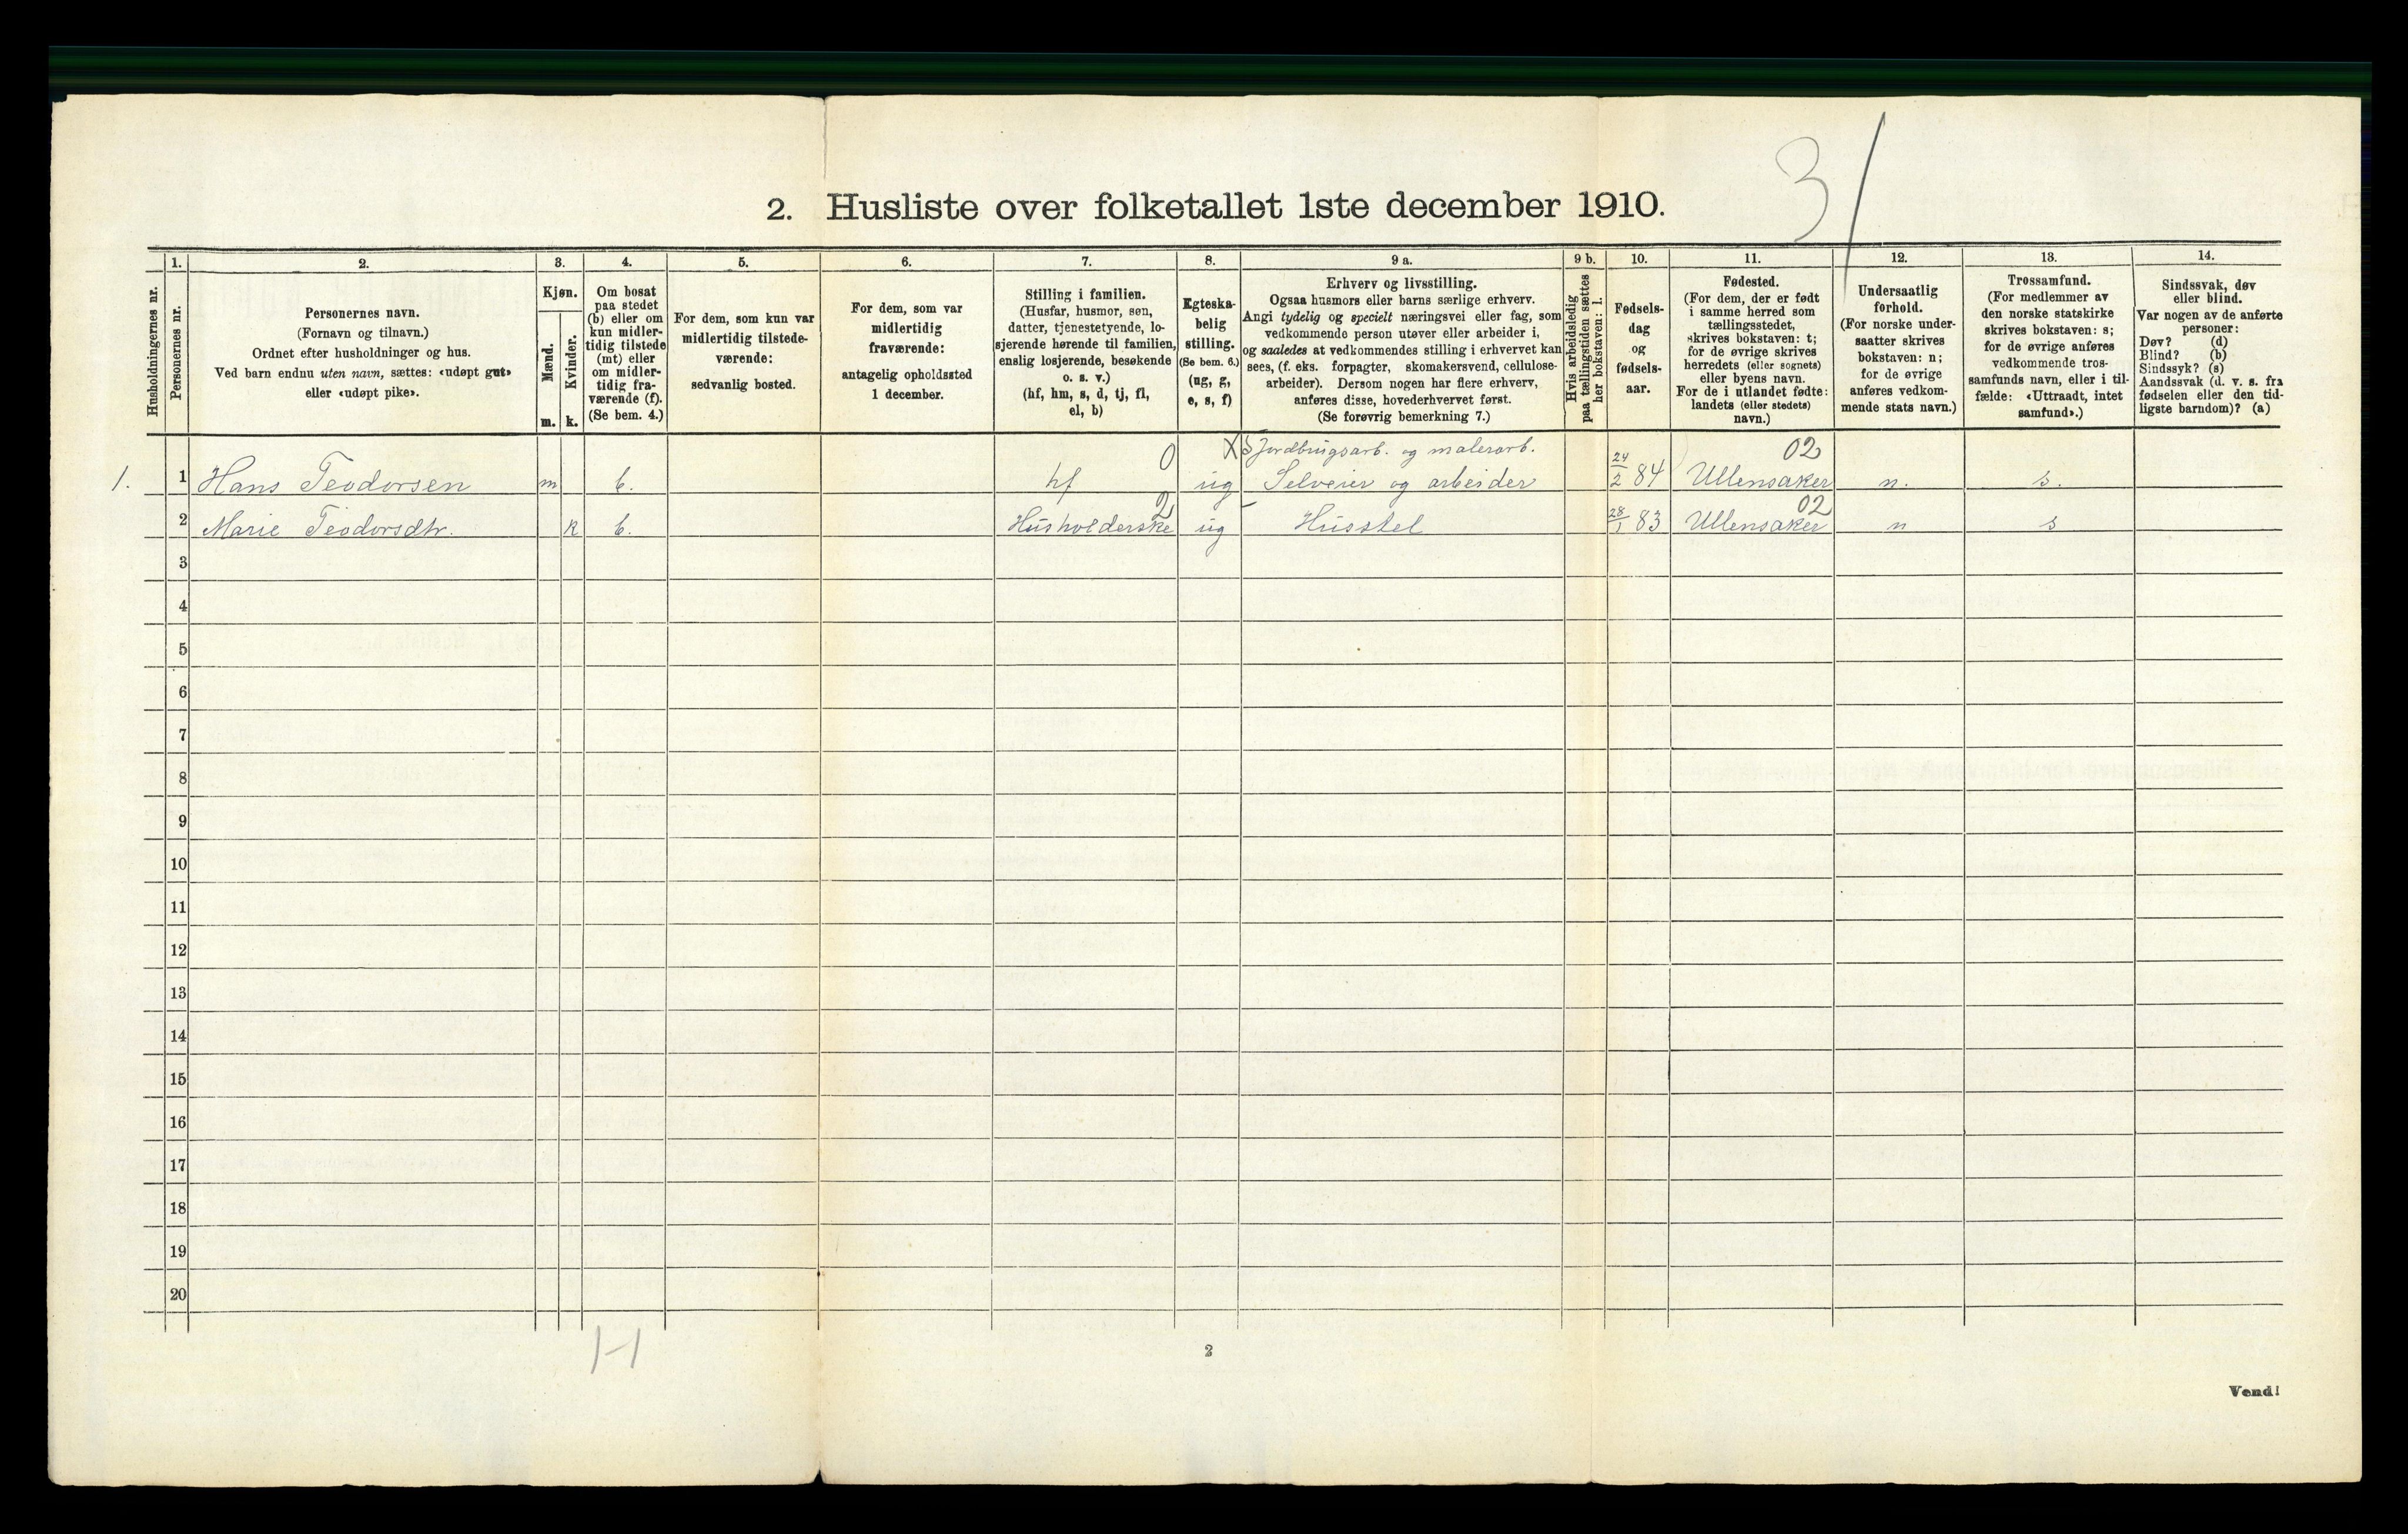 31
2. Husliste over folketallet 1ste december 1910.
Husholdningernes nr.
1.
Personernes nr.
2.
Personernes navn.
(Fornavn og tilnavn.)
Ordnet efter husholdninger og hus.
Ved barn endnu uten navn, sættes: «udøpt gut»
eller «udøpt pike».
3.
Kjøn.
Mænd.
m.
Kvinder.
k.
4.
Om bosat
paa stedet
(b) eller om
kun midler-
tidig tilstede
(mt) eller
om midler-
tidig fra-
værende (f).
(Se bem. 4.)
5.
For dem, som kun var
midlertidig tilstede-
værende:
sedvanlig bosted.
6.
For dem, som var
midlertidig
fraværende:
antagelig opholdssted
1 december.
7.
Stilling i familien.
(Husfar, husmor, søn,
datter, tjenestetyende, lo-
sjerende hørende til familien,
enslig losjerende, besøkende
o. s. v.)
(hf, hm, s, d, tj, fl,
el, b)
8.
Egteska-
belig
stilling.
(Se bem. 6.)
(ug, g,
e, s, f)
9 a.
Erhverv og livsstilling.
Ogsaa husmors eller barns særlige erhverv.
Angi tydelig og specielt næringsvei eller fag, som
vedkommende person utøver eller arbeider i,
og saaledes at vedkommendes stilling i erhvervet kan
sees, (f. eks. forpagter, skomakersvend, cellulose-
arbeider). Dersom nogen har flere erhverv,
anføres disse, hovederhvervet først.
(Se forøvrig bemerkning 7.)
9 b.
Hvis arbeidsledig
paa tællingstiden sættes
her bokstaven: l.
10.
Fødsels-
dag
og
fødsels-
aar.
11.
Fødested.
(For dem, der er født
i samme herred som
tællingsstedet,
skrives bokstaven: t;
for de øvrige skrives
herredets (eller sognets)
eller byens navn.
For de i utlandet fødte:
landets (eller stedets)
navn.)
12.
Undersaatlig
forhold.
(For norske under-
saatter skrives
bokstaven: n;
for de øvrige
anføres vedkom-
mende stats navn.)
13.
Trossamfund.
(For medlemmer av
den norske statskirke
skrives bokstaven: s;
for de øvrige anføres
vedkommende tros-
samfunds navn, eller i til-
fælde: «Uttraadt, intet
samfund».)
14.
Sindssvak, døv
eller blind.
Var nogen av de anførte
personer:
Døv? (d)
Blind? (b)
Sindssyk? (s)
Aandssvak (d. v. s. fra
fødselen eller den tid-
ligste barndom)? (a)
0 X Jordbrugsarb. og malerarb. 02
1. 1 Hans Teodorsen m b. hf ug Selveier og arbeider 24/2 84 Ullensaker n. s.
2 02
2 Marie Teodorsdtr. k b. Husholderske ug Husstel 28/1 83 Ullensaker n s
3
4
5
6
7
8
9
10
11
12
13
14
15
16
17
18
19
20
1-1
2
Vend!